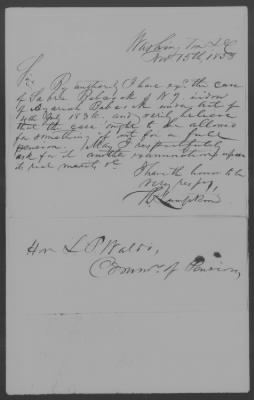 Washington D.C.
Nov. 15th 1853
Sir
By authority I have exd the case
of Sabra Babcock N.Y. widow
of Azariah Babcock under act of
4th July 1836. and verily believe
that the case ought to be allowed
for something if not for a full
pension. May I respectfully
ask for it another examination upon
its real merits &c
I have the honor to be
very respy,
Hon L. P. Waldo,
Commr. of Pensions